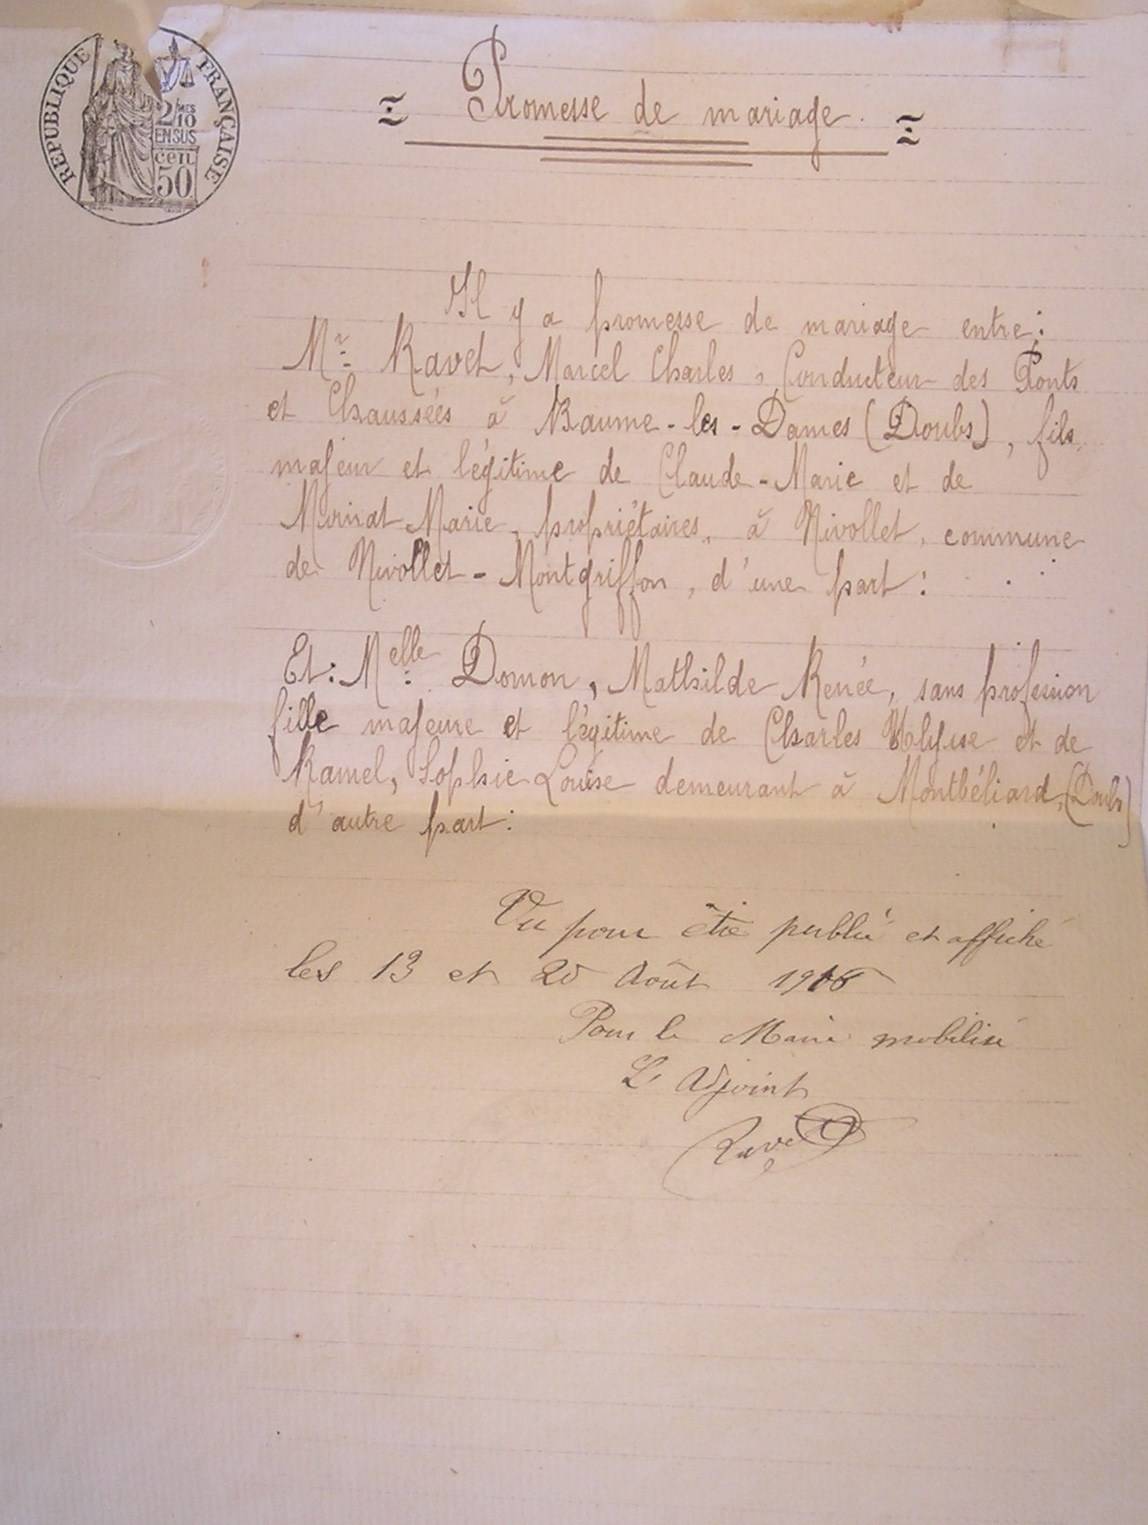 RÉPUBLIQUE FRANÇAISE
2/10 MES
EN SUS
CEN.
50
Promesse de mariage.
Il y a promesse de mariage entre :
Mr. Ravet, Marcel Charles, Conducteur des Ponts
et Chaussées à Baume-les-Dames (Doubs), fils
majeur et légitime de Claude-Marie et de
Murinat Marie, propriétaires, à Nivollet, commune
de Nivollet-Montgriffon, d'une part :
Et : Melle Domon, Mathilde Renée, sans profession
fille majeure et légitime de Charles Ulysse et de
Ramel, Sophie Louise demeurant à Montbéliard, (Doubs)
d'autre part :
Vu pour être publié et affiché
les 13 et 20 Août 1916
Pour le Maire mobilisé
L'Adjoint
Ravet